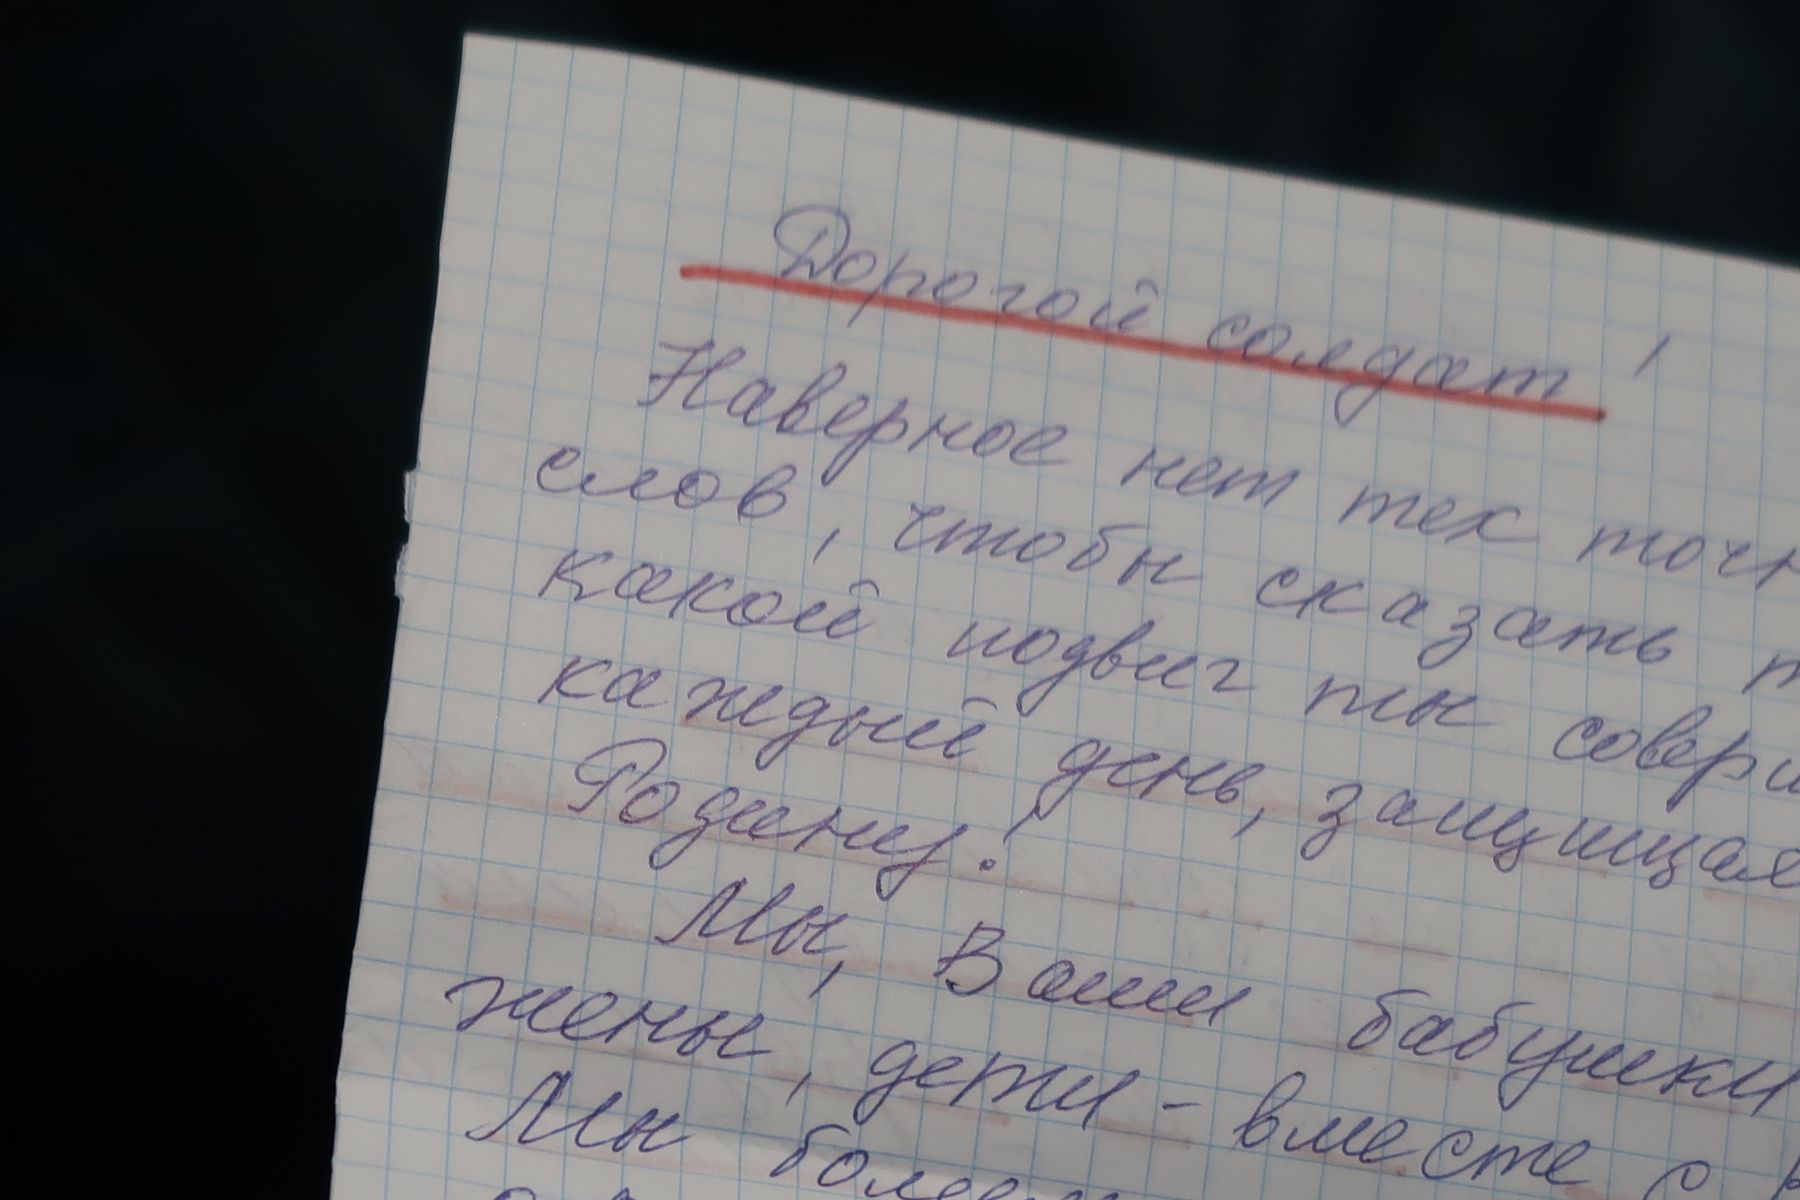 Дорогой солдат!
Наверное нет тех точн
слов, чтобы сказать т
какой подвиг ты совери
каждый день, защищая
Родину!
Мы, Ваши бабушки
жены, дети - вместе с
Мы более